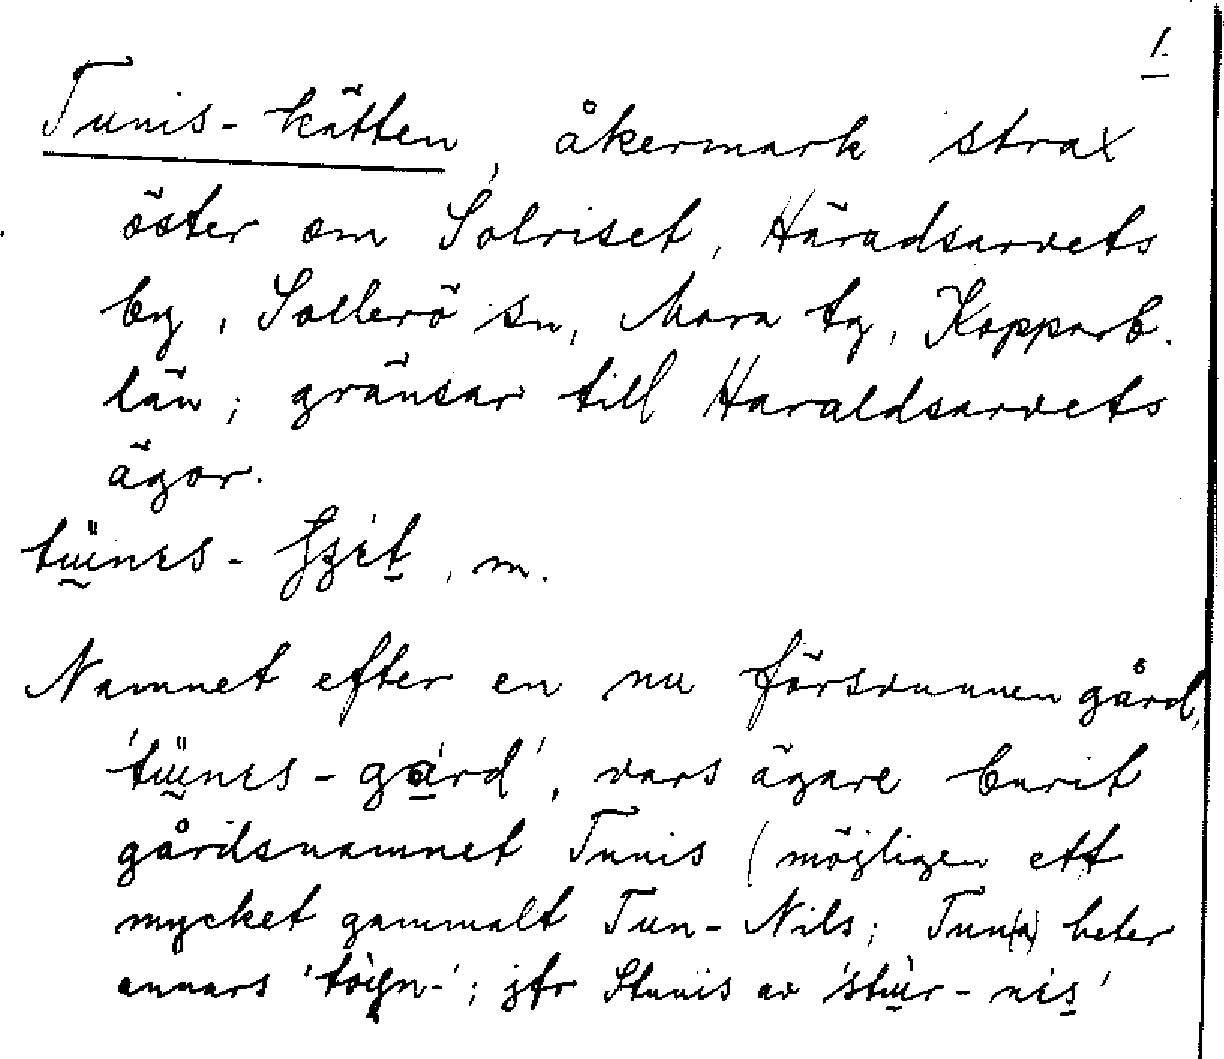 1.
Tunis-kätten, åkermark strax
öster om Solriset, Häradsarvets
by, Sollerö sn, Mora tg, Kopparb.
län; gränsar till Haraldsarvets
ägor.
, m.
Namnet efter en nu försvunnen gård,
vars ägare burit
gårdsnamnet Tunis (möjligen ett
mycket gammalt Tun-Nils; Tun(a) heter
annars ; jfr Stunis av